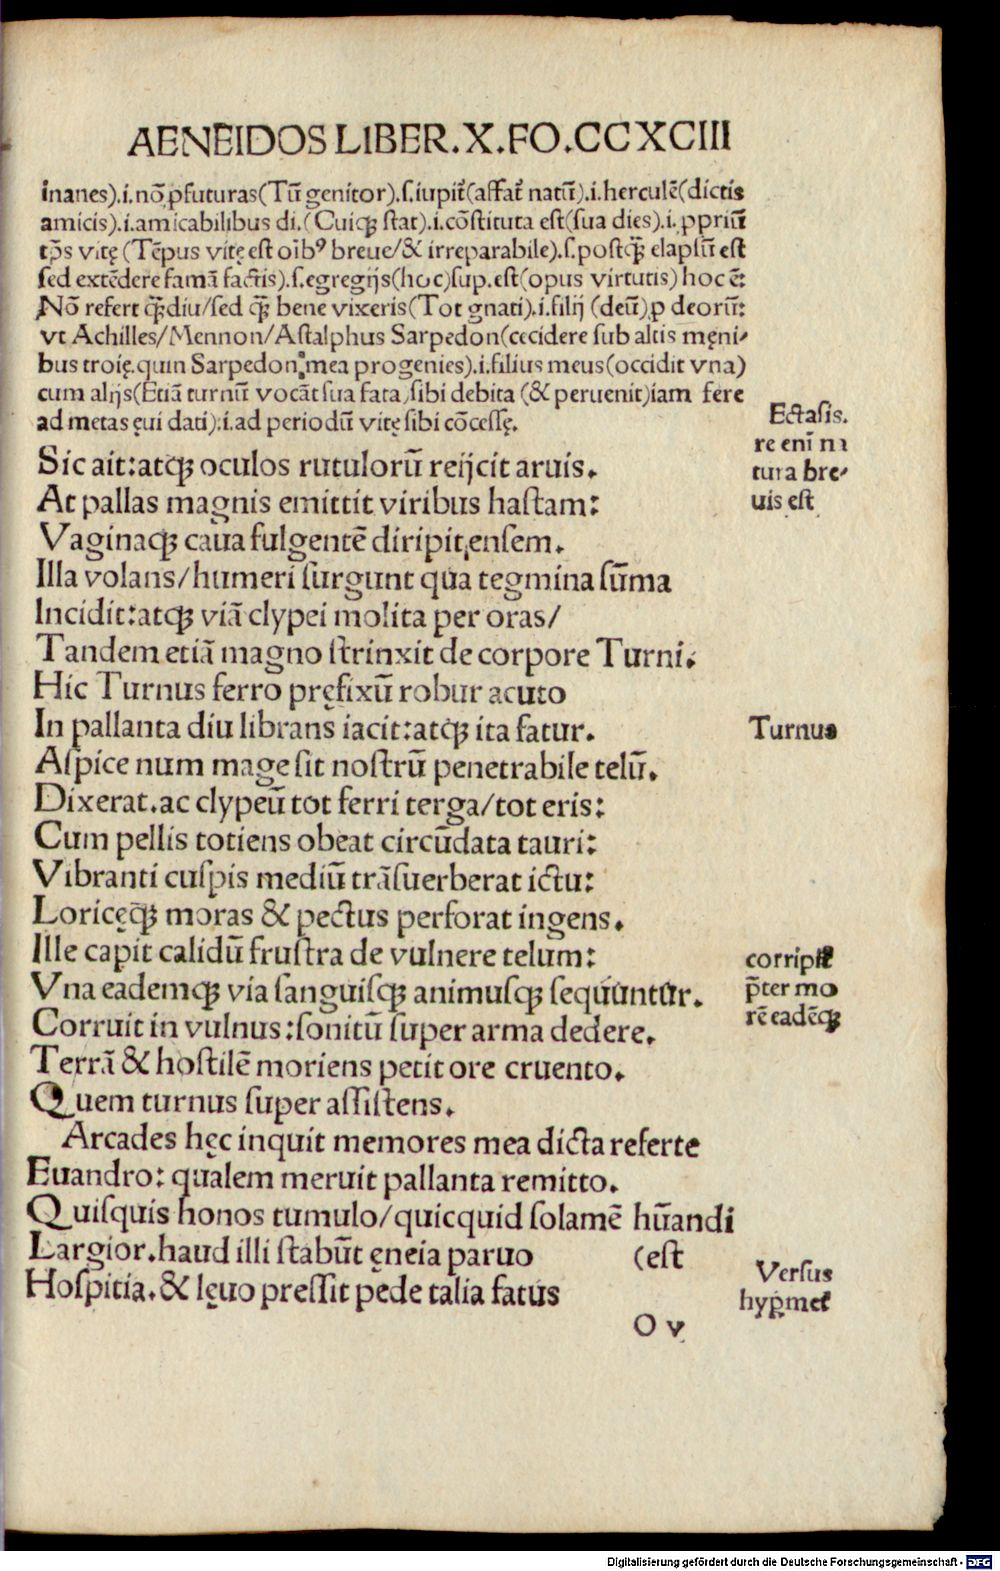 AENEIDOS LIBER.X.FO.CCXCIII
inanes).i.nō ꝓfuturas(Tū genitor).ſ.iupit᷑(affat᷑ natū).i.herculē(dictis
amicis).i.amicabilibus di.(Cuiqꝫ ſtat).i.cōſtituta eſt(ſua dies).i.ꝓpriū
tp̄s vitę (Tēpus vitę eſt oībꝰ breue/& irreparabile).ſ.poſtqꝫ̄ elapſū eſt
ſed extēdere famā factis).ſ.egregijs(hoc)ſup.eſt(opus virtutis) hoc ē:
Nō refert qꝫ̄diu/ſed qꝫ̄ bene vixeris(Tot gnati).i.filij (deū)ꝓ deorū:
vt Achilles/Mennon/Aſtalphus Sarpedon(cecidere ſub altis męni/
bus troię.quin Sarpedon mea progenies).i.filius meus(occidit vna)
cum alijs(Etiā turnū vocāt ſua fata)ſibi debita (& peruenit)iam fere
ad metas ęui dati).i.ad periodū vitę ſibi cōceſſę.
Ectaſis.
re enī na
tura bre/
uis eſt
Sic ait:atqꝫ oculos rutulorū reijcit aruis.
At pallas magnis emittit viribus haſtam:
Vaginaqꝫ caua fulgentē diripit enſem.
Illa volans/humeri ſurgunt qua tegmina ſūma
Incidit:atqꝫ viā clypei molita per oras/
Tandem etiā magno ſtrinxit de corpore Turni.
Hic Turnus ferro pręfixū robur acuto
In pallanta diu librans iacit:atqꝫ ita fatur.
Turnus
Aſpice num mage ſit noſtrū penetrabile telū.
Dixerat.ac clypeū tot ferri terga/tot eris:
Cum pellis totiens obeat circūdata tauri:
Vibranti cuſpis mediū trāſuerberat ictu:
Loricęqꝫ moras & pectus perforat ingens.
Ille capit calidū fruſtra de vulnere telum:
Vna eademqꝫ via ſanguiſqꝫ animuſqꝫ ſequuntur.
corripit᷑
p̄ter mo
rē eadēqꝫ
Corruit in vulnus:ſonitū ſuper arma dedere.
Terrā & hoſtilē moriens petit ore cruento.
Quem turnus ſuper aſſiſtens.
Arcades hęc inquit memores mea dicta referte
Euandro: qualem meruit pallanta remitto.
Quiſquis honos tumulo/quicquid ſolamē hūandi
Largior.haud illi ſtabūt ęneia paruo (eſt
Hoſpitia.& lęuo preſſit pede talia fatus
Verſus
hyꝑmet᷑
O v
Digitalisierung gefördert durch die Deutsche Forschungsgemeinschaft - DFG